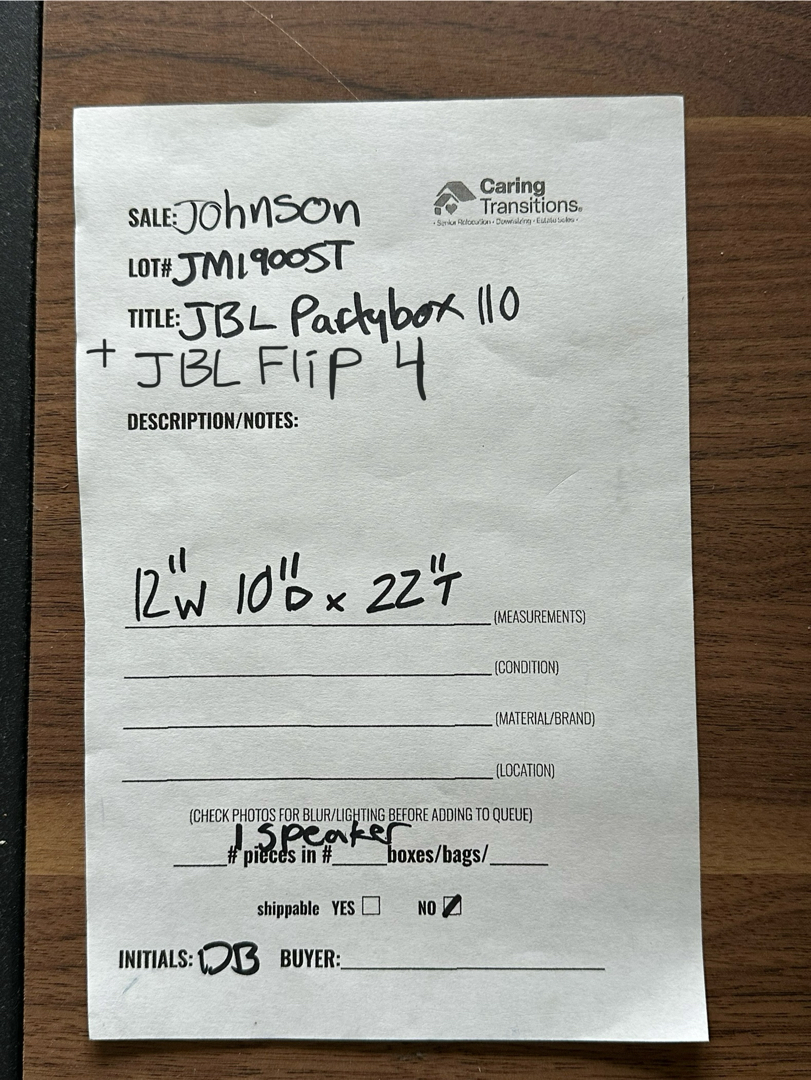 Caring
Transitions®
• Senior Relocation • Downsizing • Estate Sales •
SALE: Johnson
LOT# JM1900ST
TITLE: JBL Partybox 110
+ JBL Flip 4
DESCRIPTION/NOTES:
12"W 10"D x 22"T (MEASUREMENTS)
(CONDITION)
(MATERIAL/BRAND)
(LOCATION)
(CHECK PHOTOS FOR BLUR/LIGHTING BEFORE ADDING TO QUEUE)
1 speaker
# pieces in # boxes/bags/
shippable YES NO
INITIALS: DB BUYER: